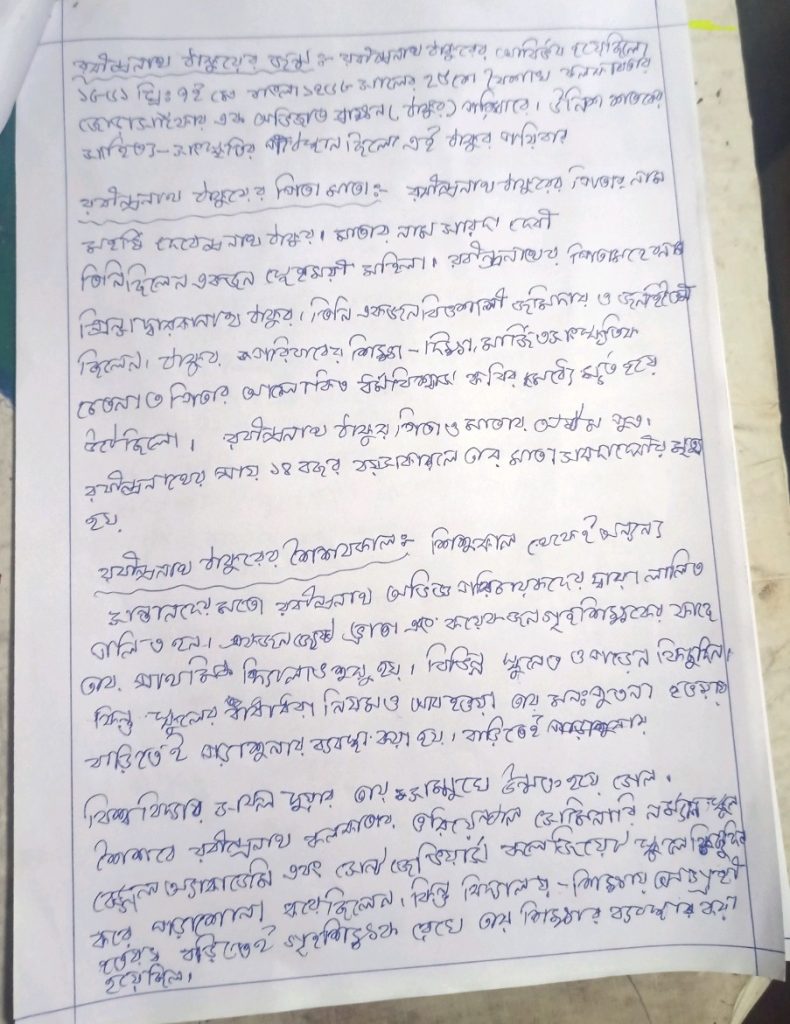 রবীন্দ্রনাথ ঠাকুরের জন্ম :- রবীন্দ্রনাথ ঠাকুরের আবির্ভাব হয়েছিলো
১৮৬১ খ্রিঃ ৭ই মে বাংলা ১২৬৮ সালের ২৫শে বৈশাখ কলকাতার
জোড়াসাঁকোর এক অভিজাত ব্রাহ্মন (ঠাকুর) পরিবারে। উনিশ শতকের
সাহিত্য-সংস্কৃতির পীঠস্থান ছিলো এই ঠাকুর পরিবার
রবীন্দ্রনাথ ঠাকুরের পিতা মাতা:- রবীন্দ্রনাথ ঠাকুরের পিতার নাম
মহর্ষি দেবেন্দ্রনাথ ঠাকুর। মাতার নাম সারদা দেবী
তিনি ছিলেন একজন স্নেহময়ী মহিলা। রবীন্দ্রনাথের পিতামহের নাম
প্রিন্স দ্বারকানাথ ঠাকুর। তিনি একজন বিত্তশালী জমিদার ও জনহিতৈষী
ছিলেন। ঠাকুর পরিবারের শিক্ষা-দিক্ষা, মার্জিত সাংস্কৃতিক
চেতনা ও পিতার আলোকিত ধর্মবিশ্বাস কবির মধ্যে মূর্ত হয়ে
উঠেছিলো। রবীন্দ্রনাথ ঠাকুর পিতা ও মাতার অষ্টম পুত্র।
রবীন্দ্রনাথের মাত্র ১৪ বছর বয়সকালে তার মাতা সারদাদেবীর মৃত্যু
হয়
রবীন্দ্রনাথ ঠাকুরের শৈশবকাল:- শিশুকাল থেকেই অন্যান্য
সন্তানদের মতো রবীন্দ্রনাথ অভিজ্ঞ পরিচারকদের দ্বারা লালিত
পালিত হন। একজন জ্যেষ্ঠ ভ্রাতা এবং কয়েকজন গৃহশিক্ষকের কাছে
তার প্রাথমিক বিদ্যালাভ শুরু হয়। বিভিন্ন স্কুলেও ও পড়েন কিছুদিন।
কিন্তু স্কুলের বাঁধাধরা নিয়ম ও আবহাওয়া তার মনঃপুত না হওয়ায়
বাড়িতেই পড়াশুনার ব্যবস্থা করা হয়। বাড়িতেই পড়াশুনায়
বিশ্ববিদ্যার দুয়ার তার সম্মুখে উন্মুক্ত হয়ে গেল।
শৈশবে রবীন্দ্রনাথ কলকাতার ওরিয়েন্টাল সেমিনারি নর্ম্যাল স্কুল
বেঙ্গল অ্যাকাডেমি এবং সেন্ট জেভিয়ার্স কলেজিয়েট স্কুলে কিছুদিন
করে পড়াশোনা করেছিলেন। কিন্তু বিদ্যালয়-শিক্ষায় অনাগ্রহী
হওয়ায় বাড়িতেই গৃহশিক্ষক রেখে তার শিক্ষার ব্যবস্থার করা
হয়েছিল।